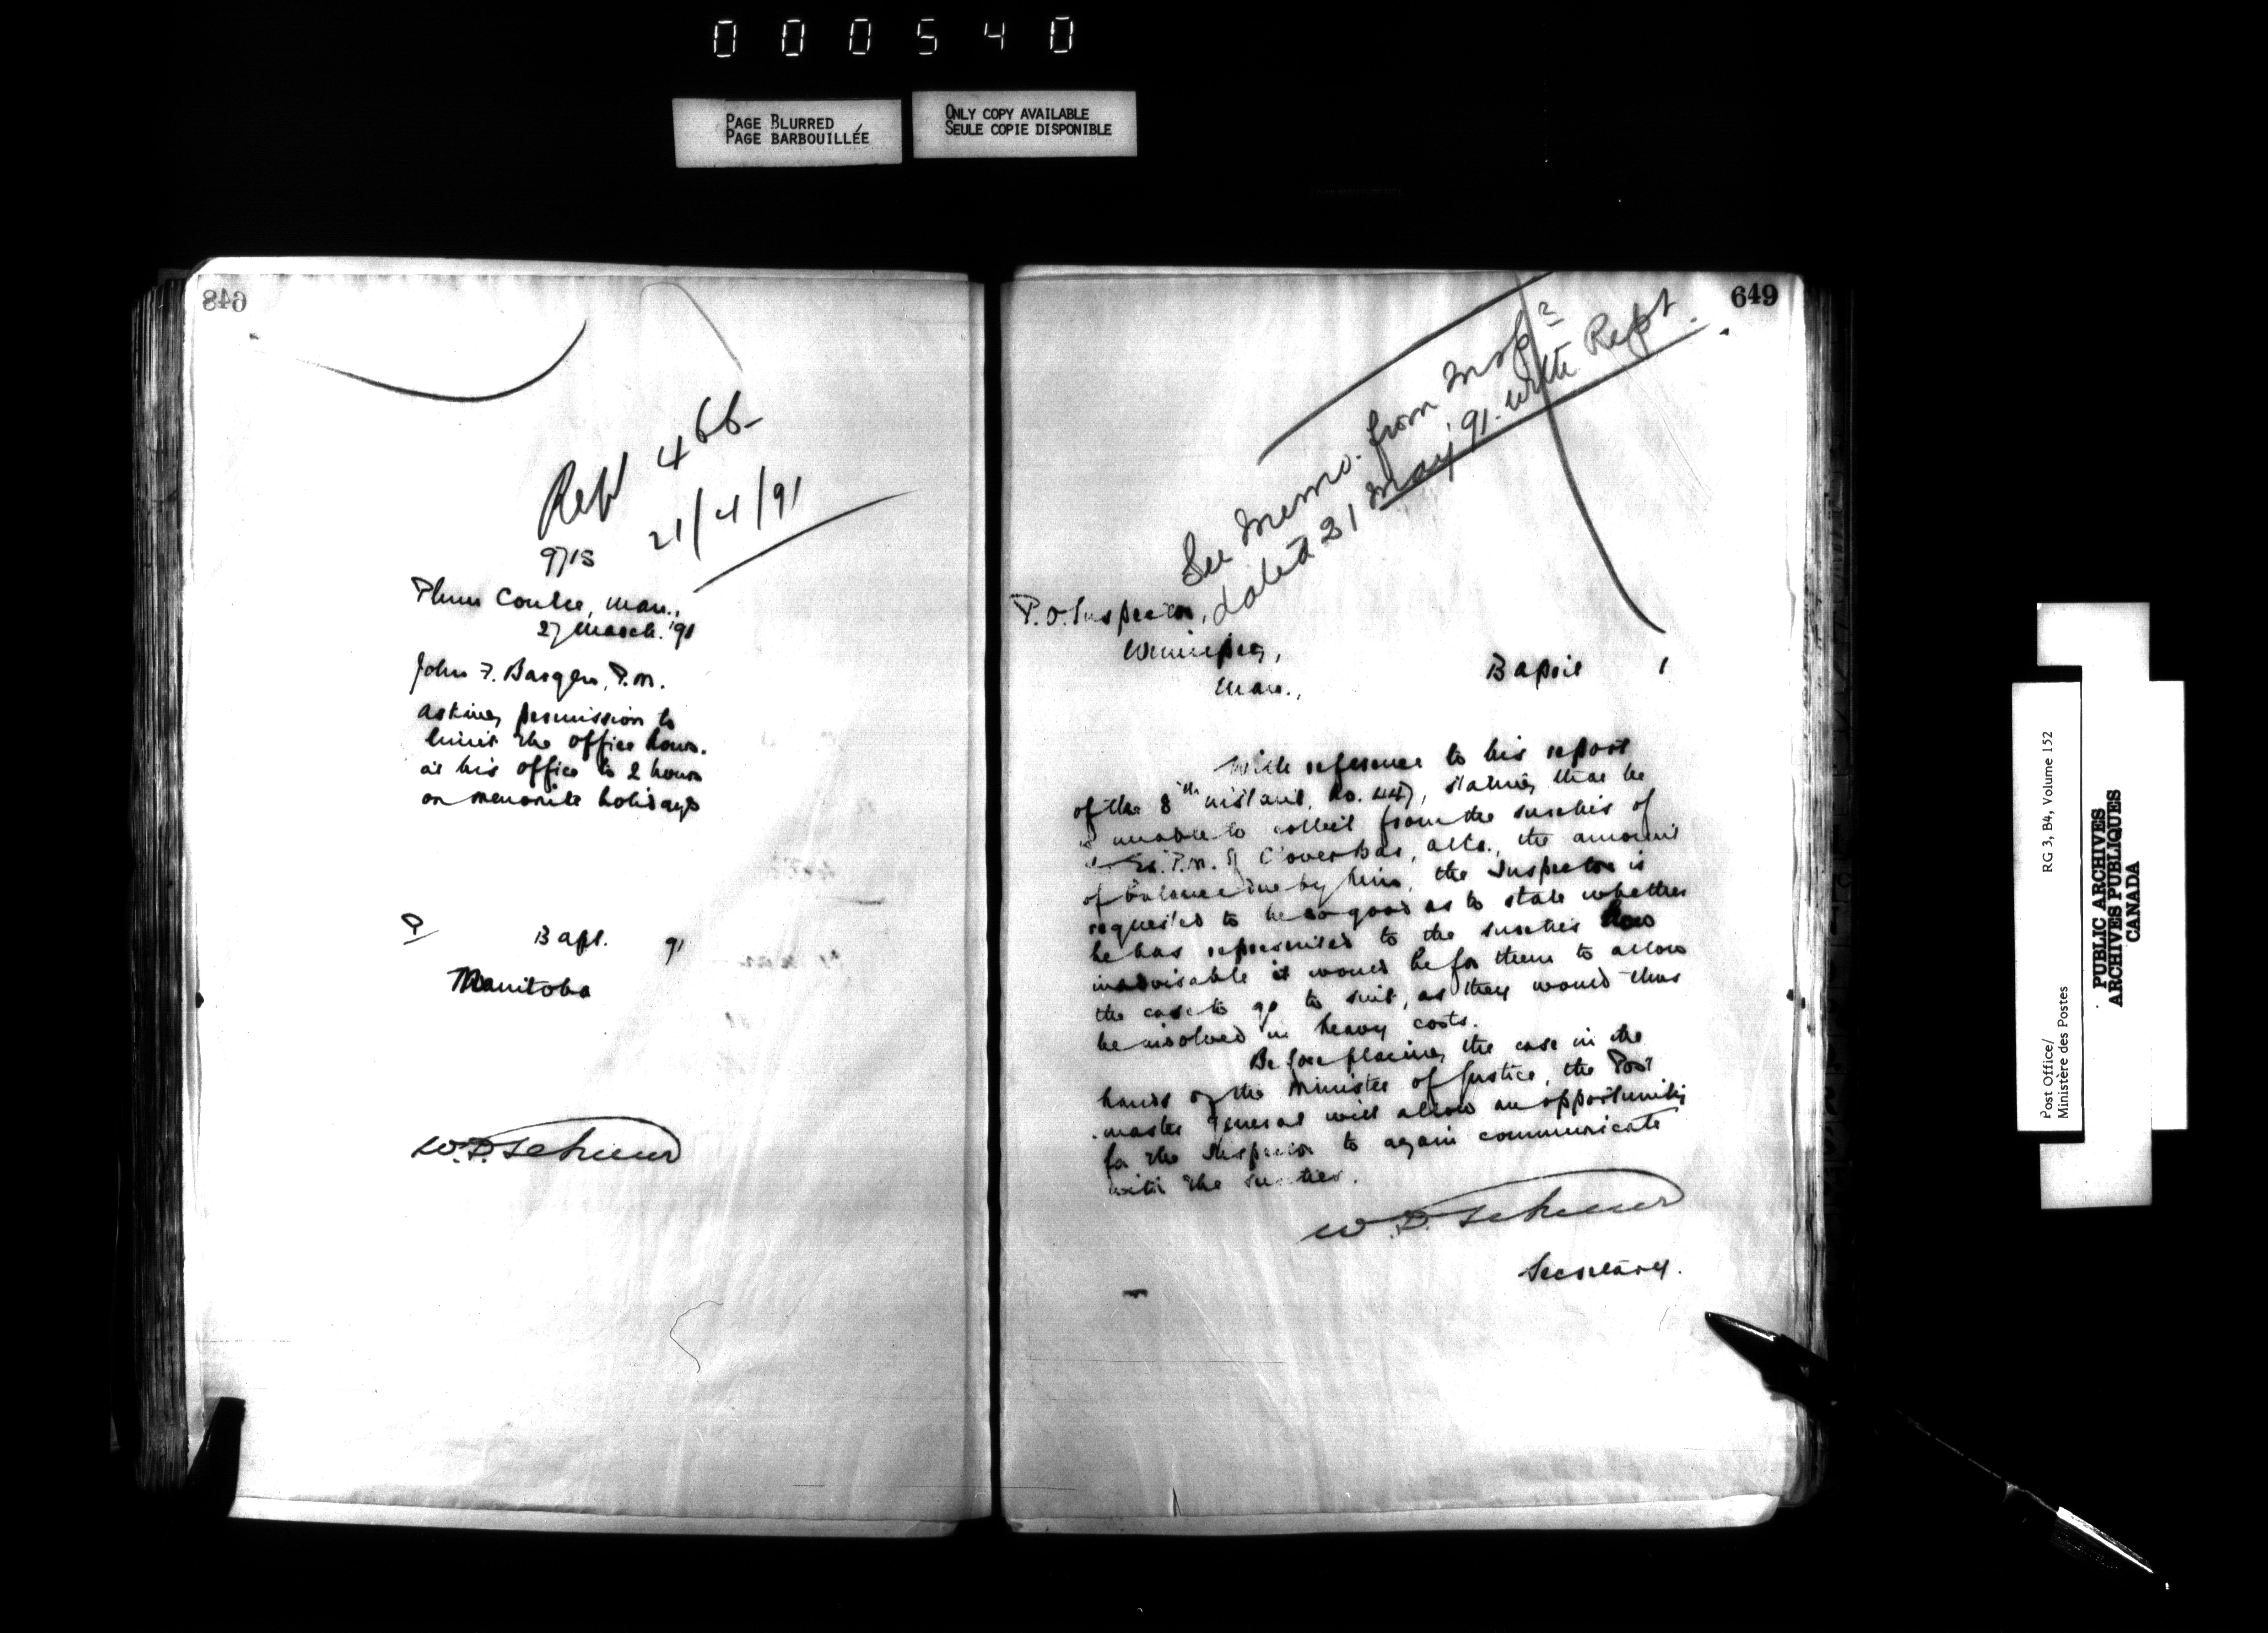 0 0 0 5 4 0
PAGE BLURRED
PAGE BARBOUILLÉE
ONLY COPY AVAILABLE
SEULE COPIE DISPONIBLE
648
Rept 466
21/4/91
971S
Plum Coulee, Man.,
27 March. '91
John F. Bargen, P.M.
asking permission to
limit the office hours.
at his office to 2 hours
on menonite holidays
P
13 apl. 91
Manitoba
W.D. LeSueur
649
See Memo. from Inspr
dated 21 May '91. with Rept.
P.O. Inspector,
Winnipeg,
Man.,
13 april 1
With reference to his report
of the 8th instant, No. 447, stating that he
is unable to collect from the sureties of
Ex. P.M. of Clover Bar, Alta., the amount
of balance due by him, the Inspector is
requested to be so good as to state whether
he has represented to the sureties how
inadvisable it would be for them to allow
the case to go to suit, as they would thus
be involved in heavy costs.
Before placing the case in the
hands of the Minister of Justice, the Post
master General will allow an opportunity
for the Inspector to again communicate
with the sureties.
W.D. LeSueur
Secretary.
Post Office/
Ministère des Postes
RG 3, B4, Volume 152
PUBLIC ARCHIVES
ARCHIVES PUBLIQUES
CANADA